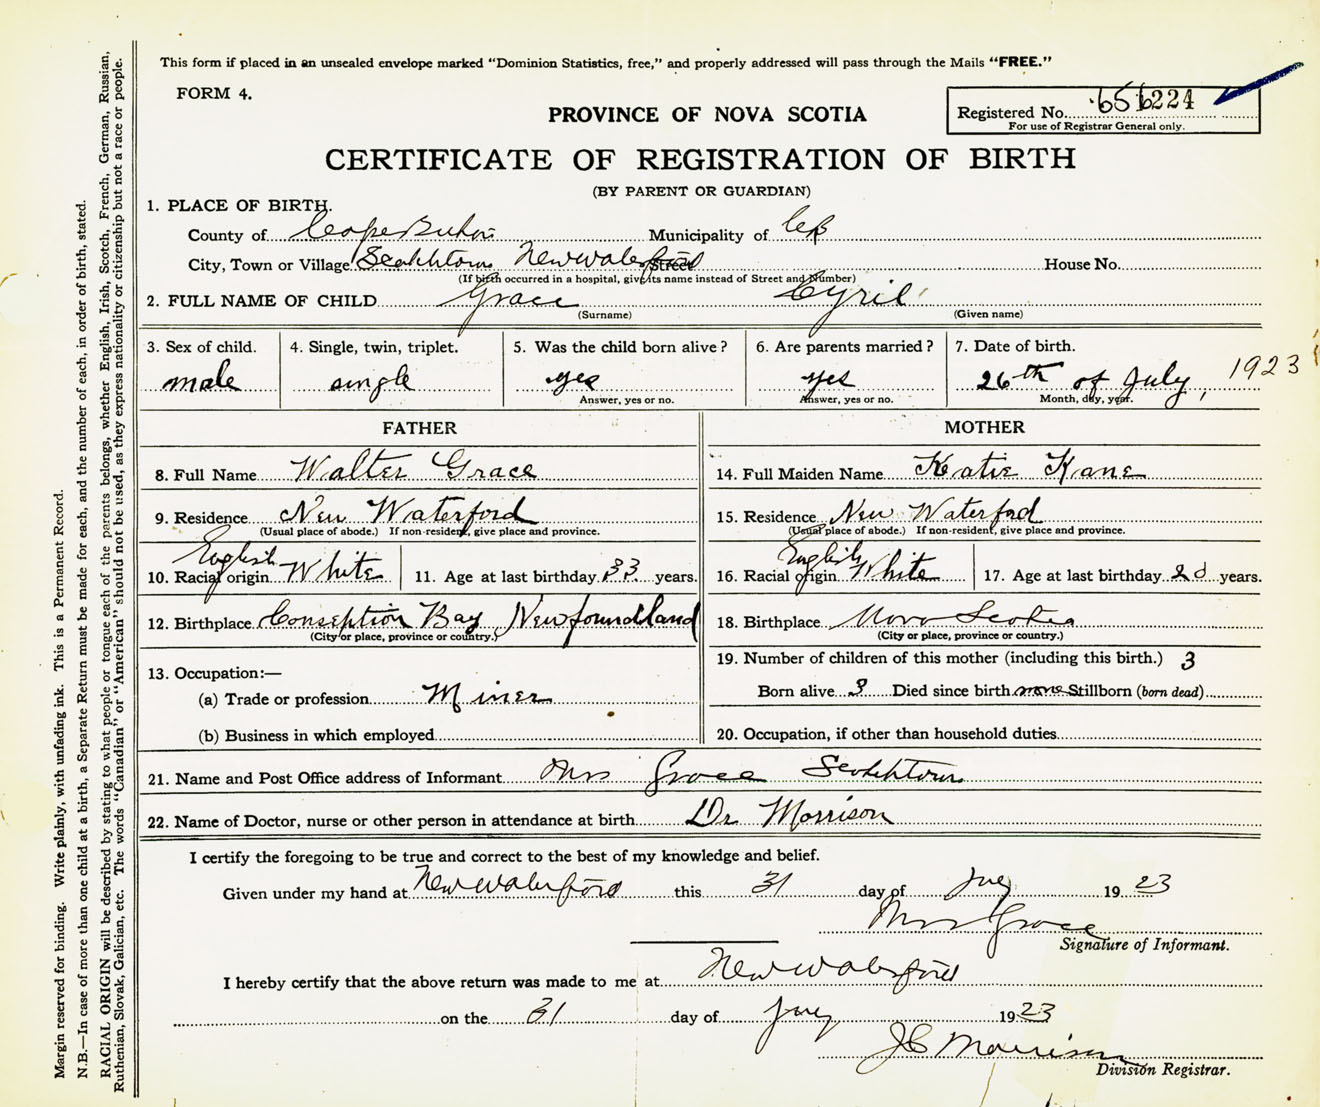 This form if placed in an unsealed envelope marked "Dominion Statistics, free," and properly addressed will pass through the Mails "FREE."
FORM 4.
PROVINCE OF NOVA SCOTIA
Registered No. 224
For use of Registrar General only.
CERTIFICATE OF REGISTRATION OF BIRTH
(BY PARENT OR GUARDIAN)
1. PLACE OF BIRTH.
County of Cape Breton Municipality of CB
City, Town or Village Scotchtown New Waterford Street House No.
(If birth occurred in a hospital, give its name instead of Street and Number)
2. FULL NAME OF CHILD Grace Cyril
(Surname) (Given name)
3. Sex of child. 4. Single, twin, triplet. 5. Was the child born alive? 6. Are parents married? 7. Date of birth.
male single yes yes 26th of July, 1923
Answer, yes or no. Answer, yes or no. Month, day, year.
FATHER
8. Full Name Walter Grace
9. Residence New Waterford
(Usual place of abode.) If non-resident, give place and province.
English
10. Racial origin White 11. Age at last birthday 33 years.
12. Birthplace Conseption Bay Newfoundland
(City or place, province or country.)
13. Occupation:—
(a) Trade or profession Miner
(b) Business in which employed
MOTHER
14. Full Maiden Name Katie Kane
15. Residence New Waterford
(Usual place of abode.) If non-resident, give place and province.
English
16. Racial origin White 17. Age at last birthday years.
18. Birthplace Nova Scotia
(City or place, province or country.)
19. Number of children of this mother (including this birth.) 3
Born alive 3 Died since birth none Stillborn (born dead)
20. Occupation, if other than household duties
21. Name and Post Office address of Informant Mrs Grace Scotchtown
22. Name of Doctor, nurse or other person in attendance at birth Dr Morrison
I certify the foregoing to be true and correct to the best of my knowledge and belief.
Given under my hand at New Waterford this 31 day of July 1923
Mrs Grace
Signature of Informant.
I hereby certify that the above return was made to me at New Waterford
on the 31 day of July 1923
J C Morrison
Division Registrar.
Margin reserved for binding. Write plainly, with unfading ink. This is a Permanent Record.
N.B.—In case of more than one child at a birth, a Separate Return must be made for each, and the number of each, in order of birth, stated.
RACIAL ORIGIN will be described by stating to what people or tongue each of the parents belongs, whether English, Irish, Scotch, French, German, Russian,
Ruthenian, Slovak, Galician, etc. The words "Canadian" or "American" should not be used, as they express nationality or citizenship but not a race or people.